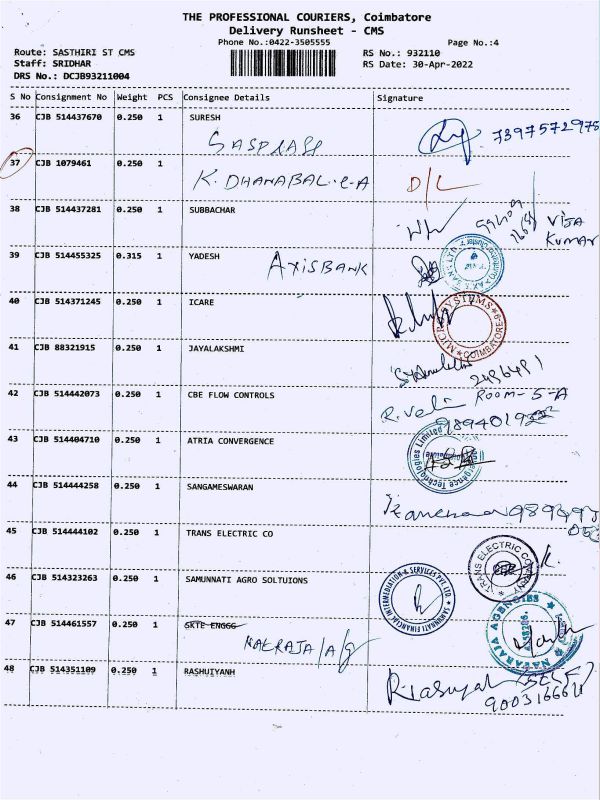 THE PROFESSIONAL COURIERS, Coimbatore
Delivery Runsheet - CMS
Phone No.:0422-3505555
Page No.:4
Route: SASTHIRI ST CMS
RS No.: 932110
Staff: SRIDHAR
RS Date: 30-Apr-2022
DRS No.: DCJB93211004
S No Consignment No Weight PCS Consignee Details Signature
36 CJB 514437670 0.250 1 SURESH
7397572975
37 CJB 1079461 0.250 1
K. DHANABAL.C.A D/L
38 CJB 514437281 0.250 1 SUBBACHAR
VIJA
KUMAR
39 CJB 514455325 0.315 1 YADESH
AXISBANK
40 CJB 514371245 0.250 1 ICARE
MICRO SYSTEMS * COIMBATORE-9 *
41 CJB 88321915 0.250 1 JAYALAKSHMI
2496491
42 CJB 514442073 0.250 1 CBE FLOW CONTROLS
ROOM-5-A
R. Veli
43 CJB 514404710 0.250 1 ATRIA CONVERGENCE
Convergence Technologies Limited
44 CJB 514444258 0.250 1 SANGAMESWARAN
45 CJB 514444102 0.250 1 TRANS ELECTRIC CO
TRANS ELECTRIC COMPANY
46 CJB 514323263 0.250 1 SAMUNNATI AGRO SOLTUIONS
SAMUNNATI FINANCIAL INTERMEDIATION & SERVICES PVT. LTD
47 CJB 514461557 0.250 1 SKTE ENGGG
NATARAJA AGENCIES
48 CJB 514351109 0.250 1 RASHUIYANH
(SELF)